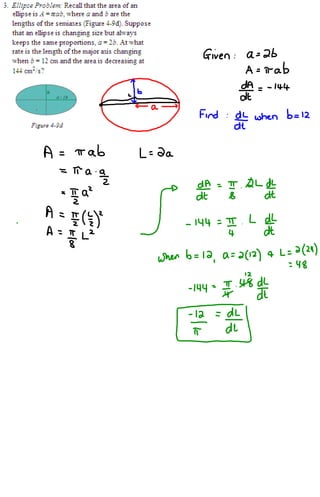 3. Ellipse Problem: Recall that the area of an
ellipse is A = πab, where a and b are the
lengths of the semiaxes (Figure 4-9d). Suppose
that an ellipse is changing size but always
keeps the same proportions, a = 2b. At what
rate is the length of the major axis changing
when b = 12 cm and the area is decreasing at
144 cm²/s?
Figure 4-9d
b
a
Given: a=2b
A = πab
dA/dt = -144
Find: dL/dt when b=12
A = πab
L=2a
= πa·a/2
= π/2 a²
A = π/2 (L/2)²
A = π/8 L²
dA/dt = π/8 · 2L dL/dt
-144 = π/4 · L dL/dt
when b=12, a=2(12) & L=2(24)
=48
12
-144 = π/4 · 48 dL/dt
-12/π = dL/dL